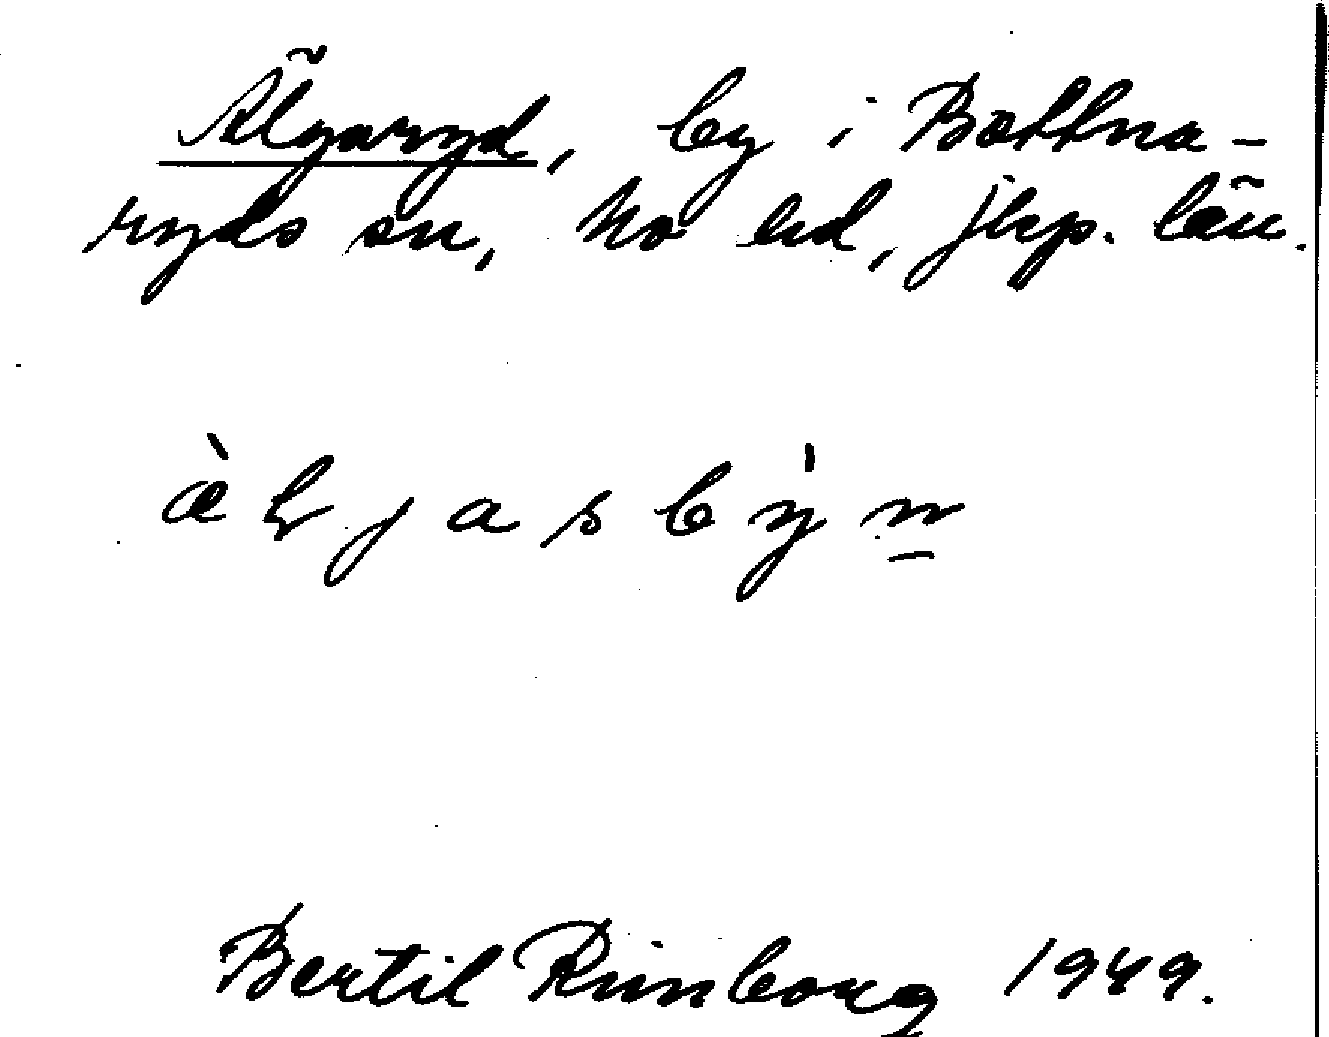 Älgaryd, by i Bottna-
ryds sn, Mo hd, Jkp. län.
æ̀ljasbẏn̲
Bertil Rimborg 1949.